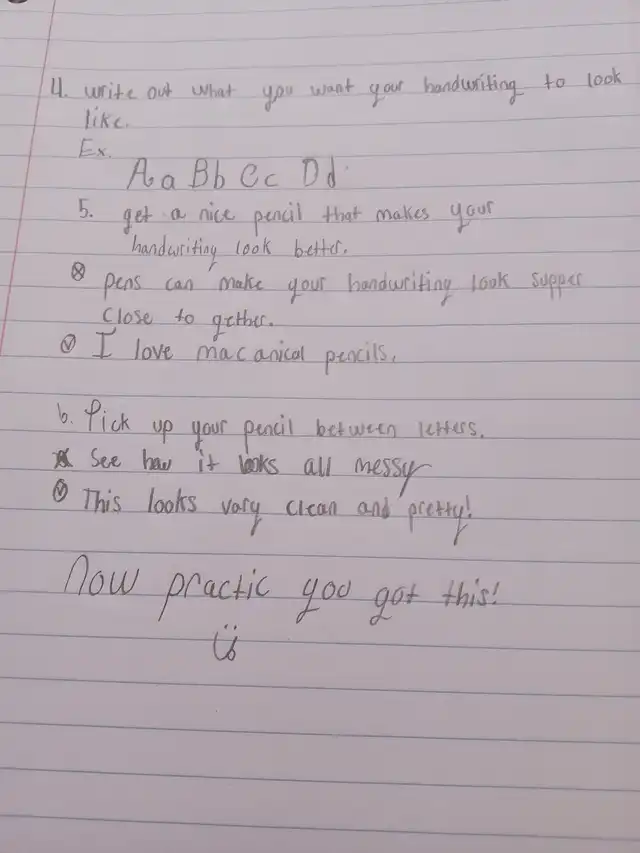 4. write out what you want your handwriting to look
like.
Ex.
Aa Bb Cc Dd
5. get a nice pencil that makes your
handwriting look better.
pens can make your handwriting look supper
close to gether.
I love macanical pencils.
6. Pick up your pencil between letters.
See how it looks all messy
This looks vary clean and pretty!
Now practic you got this!